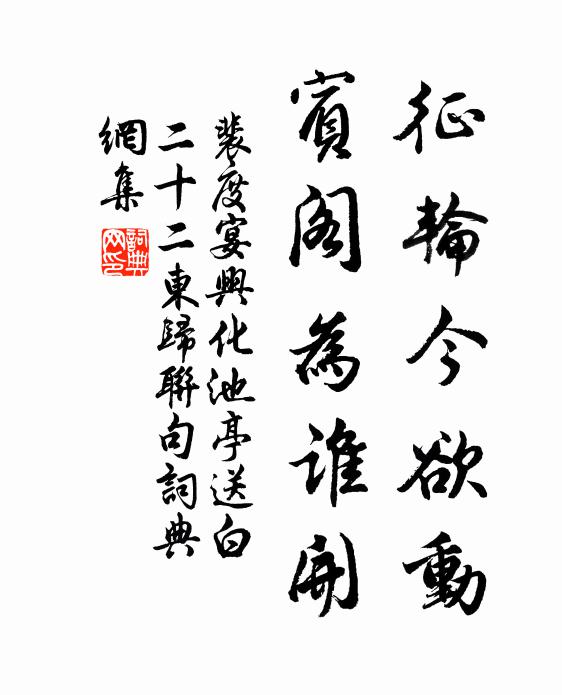 征輪今欲動
賓閣為誰開
裴度宴興化池亭送白
二十二東歸聯句詞典
網集
詞典
网印